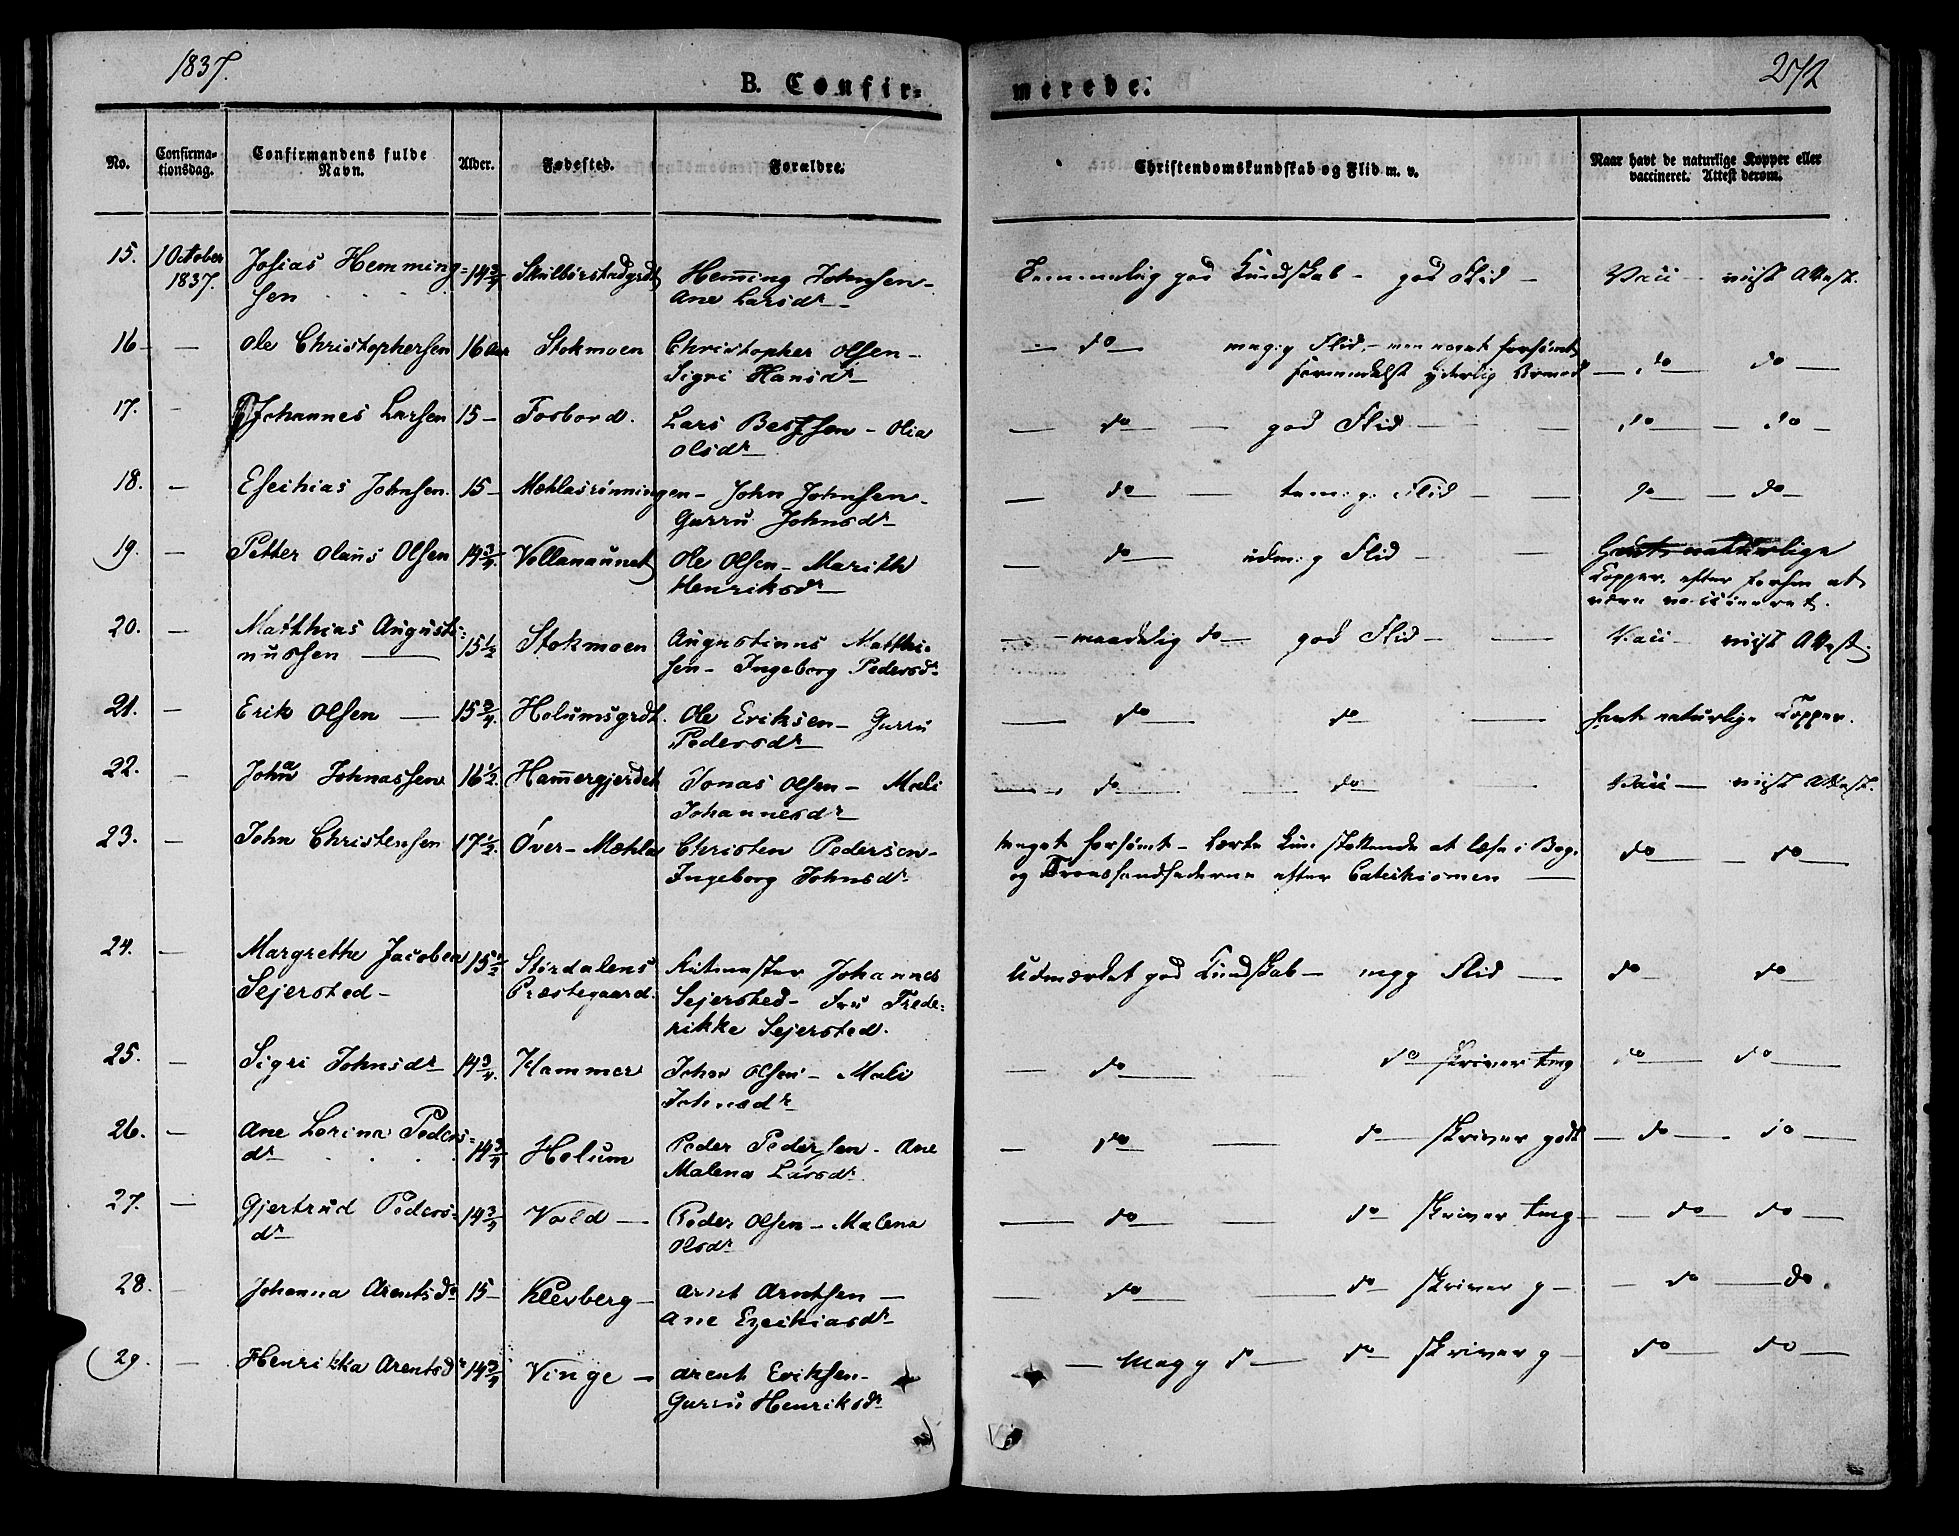 1837.
272
B. Confir-
merede.
No.
Confirma-
tionsdag.
Confirmandens fulde
Navn.
Alder.
Fødested.
Forældre.
Christendomskundskab og Flid m. v.
Naar havt de naturlige Kopper eller
vaccineret. Attest derom.
15. 1 October Josias Hemming= 14 3/4 Heming Johnsen- Temmelig god Kundskab - god Flid - Vacc - viist Attest.
1837. sen Ane Larsdr-
16 - - Ole Christophersen 16 Stokmoen Christopher Olsen- - do - meg:g Flid, - men noget forsømt
Sigri Hansdr- formedelst yderlig Armod - do - do -
17. - Johannes Larsen 15 - Fosbord. Lars - Olia - do - god Flid - - do - do -
Olsdr-
18. - Esechias Johnsen. 15 - Mæhlasrønningen - John Johnsen- - do - tem: g: Flid - - do - do -
Gurru Johnsdr-
19. - Petter Olaus Olsen 14 3/4 Vollanaunet Ole Olsen - Marith - do - udm: g Flid - - Havt naturlige
Henriksdr- Kopper efter forhen at
være vaccineret.
20. - Matthias Augusti= 15 1/2 Stokmoen Augustinus Matthi- - maadelig do - god Flid - - Vacc - viist Attest.
nussen - sen - Ingeborg Pedersdr-
21. - Erik Olsen - 15 3/4 Holumsgrdt. Ole Eriksen - Gurru - do - do - havt naturlige Kopper.
Pedersdr-
22. - Johan Johnassen 16 1/2 Hamergjerdet Jonas Olsen - Mali - do - do - Vacc - viist Attest.
Johannesdr-
23. - John Christensen 17 1/2. Over-Mæhla Christen Pedersen- meget forsømt - Lærte kun stottende at læse i Bog.
Ingeborg Johnsdr- og efter Catechismen - do - do -
24. - Margrethe Jacobea 15 1/2 Størdalens Ritmester Johannes Udmærket god Kundskab - megg Flid - do - do -
Sejersted - Præstegaard. Sejersted - Fru Frede=
rikke Sejersted.
25. - Sigri Johnsdr- 14 3/4. Hammer John Olsen - Mali - do - do - skriver tmg do - do -
Johnsdr-
26. - Ane Lorina Peders= 14 3/4 Holum Peder Pedersen - Ane - do - do - skriver godt - do - do -
dr- Malena Larsdr.
27. - Gjertrud Peders= 14 3/4 Vold - Peder Olsen - Malena - do - do - skriver tmg - do - do -
dr- Olsdr-
28. - Johanna Arentsdr 15 - Klevberg - Arnt Arntsen - - do - do - skriver g - - do - do.
Ane Ezechiasdr-
29. - Henrikka Arentsdr 14 3/4 Vinge - Arent Eriksen- - Meg g do - do - skriver g - do - do -
Gurru Henriksdr